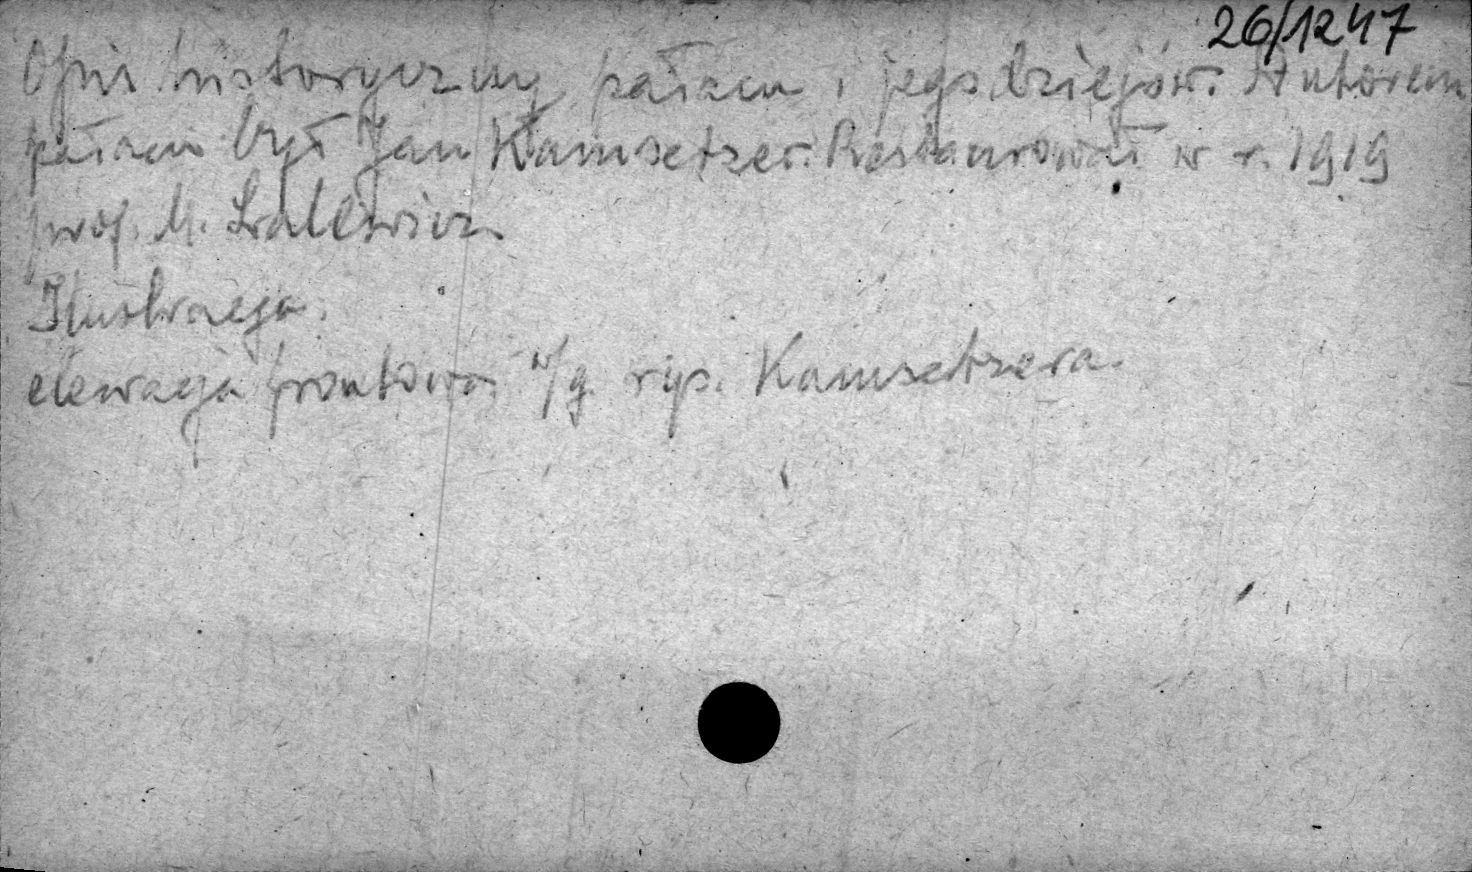 26/1247
Opis historyczny pałacu i jego dziejów. Autorem
pałacu był Jan Kamsetzer. Restaurował w r. 1919
prof. M. Lalewicz.
Ilustracja.
elewacja frontowa w/g rys. Kamsetzera.